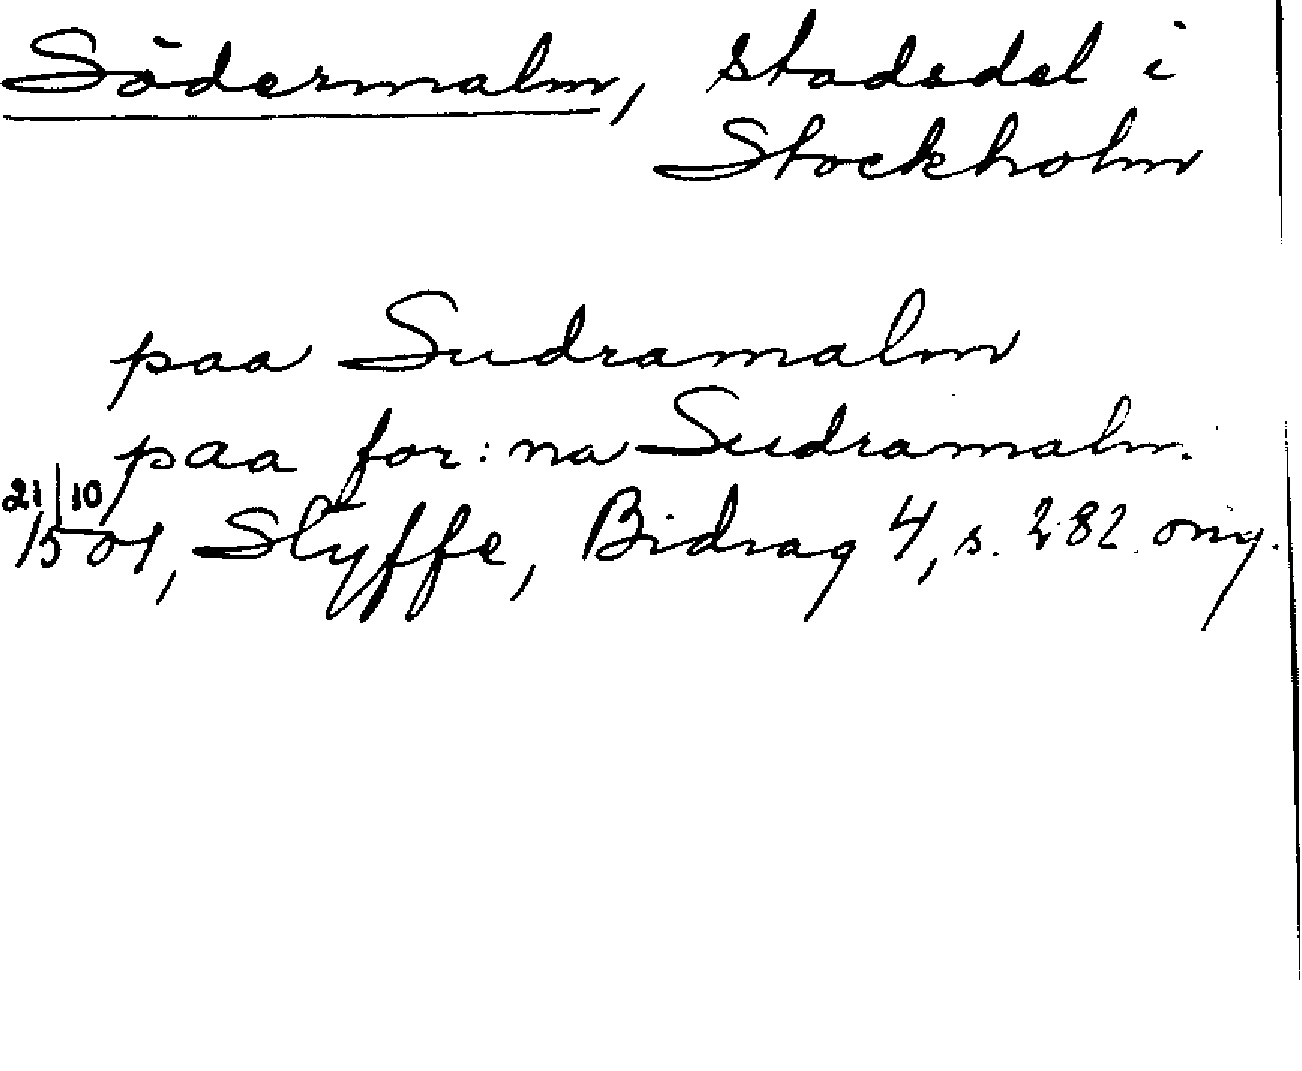 Södermalm, stadsdel i
Stockholm
paa Sudramalm
paa for: na Sudramalm.
21/10
1501, Styffe, Bidrag 4, s. 282 orig.